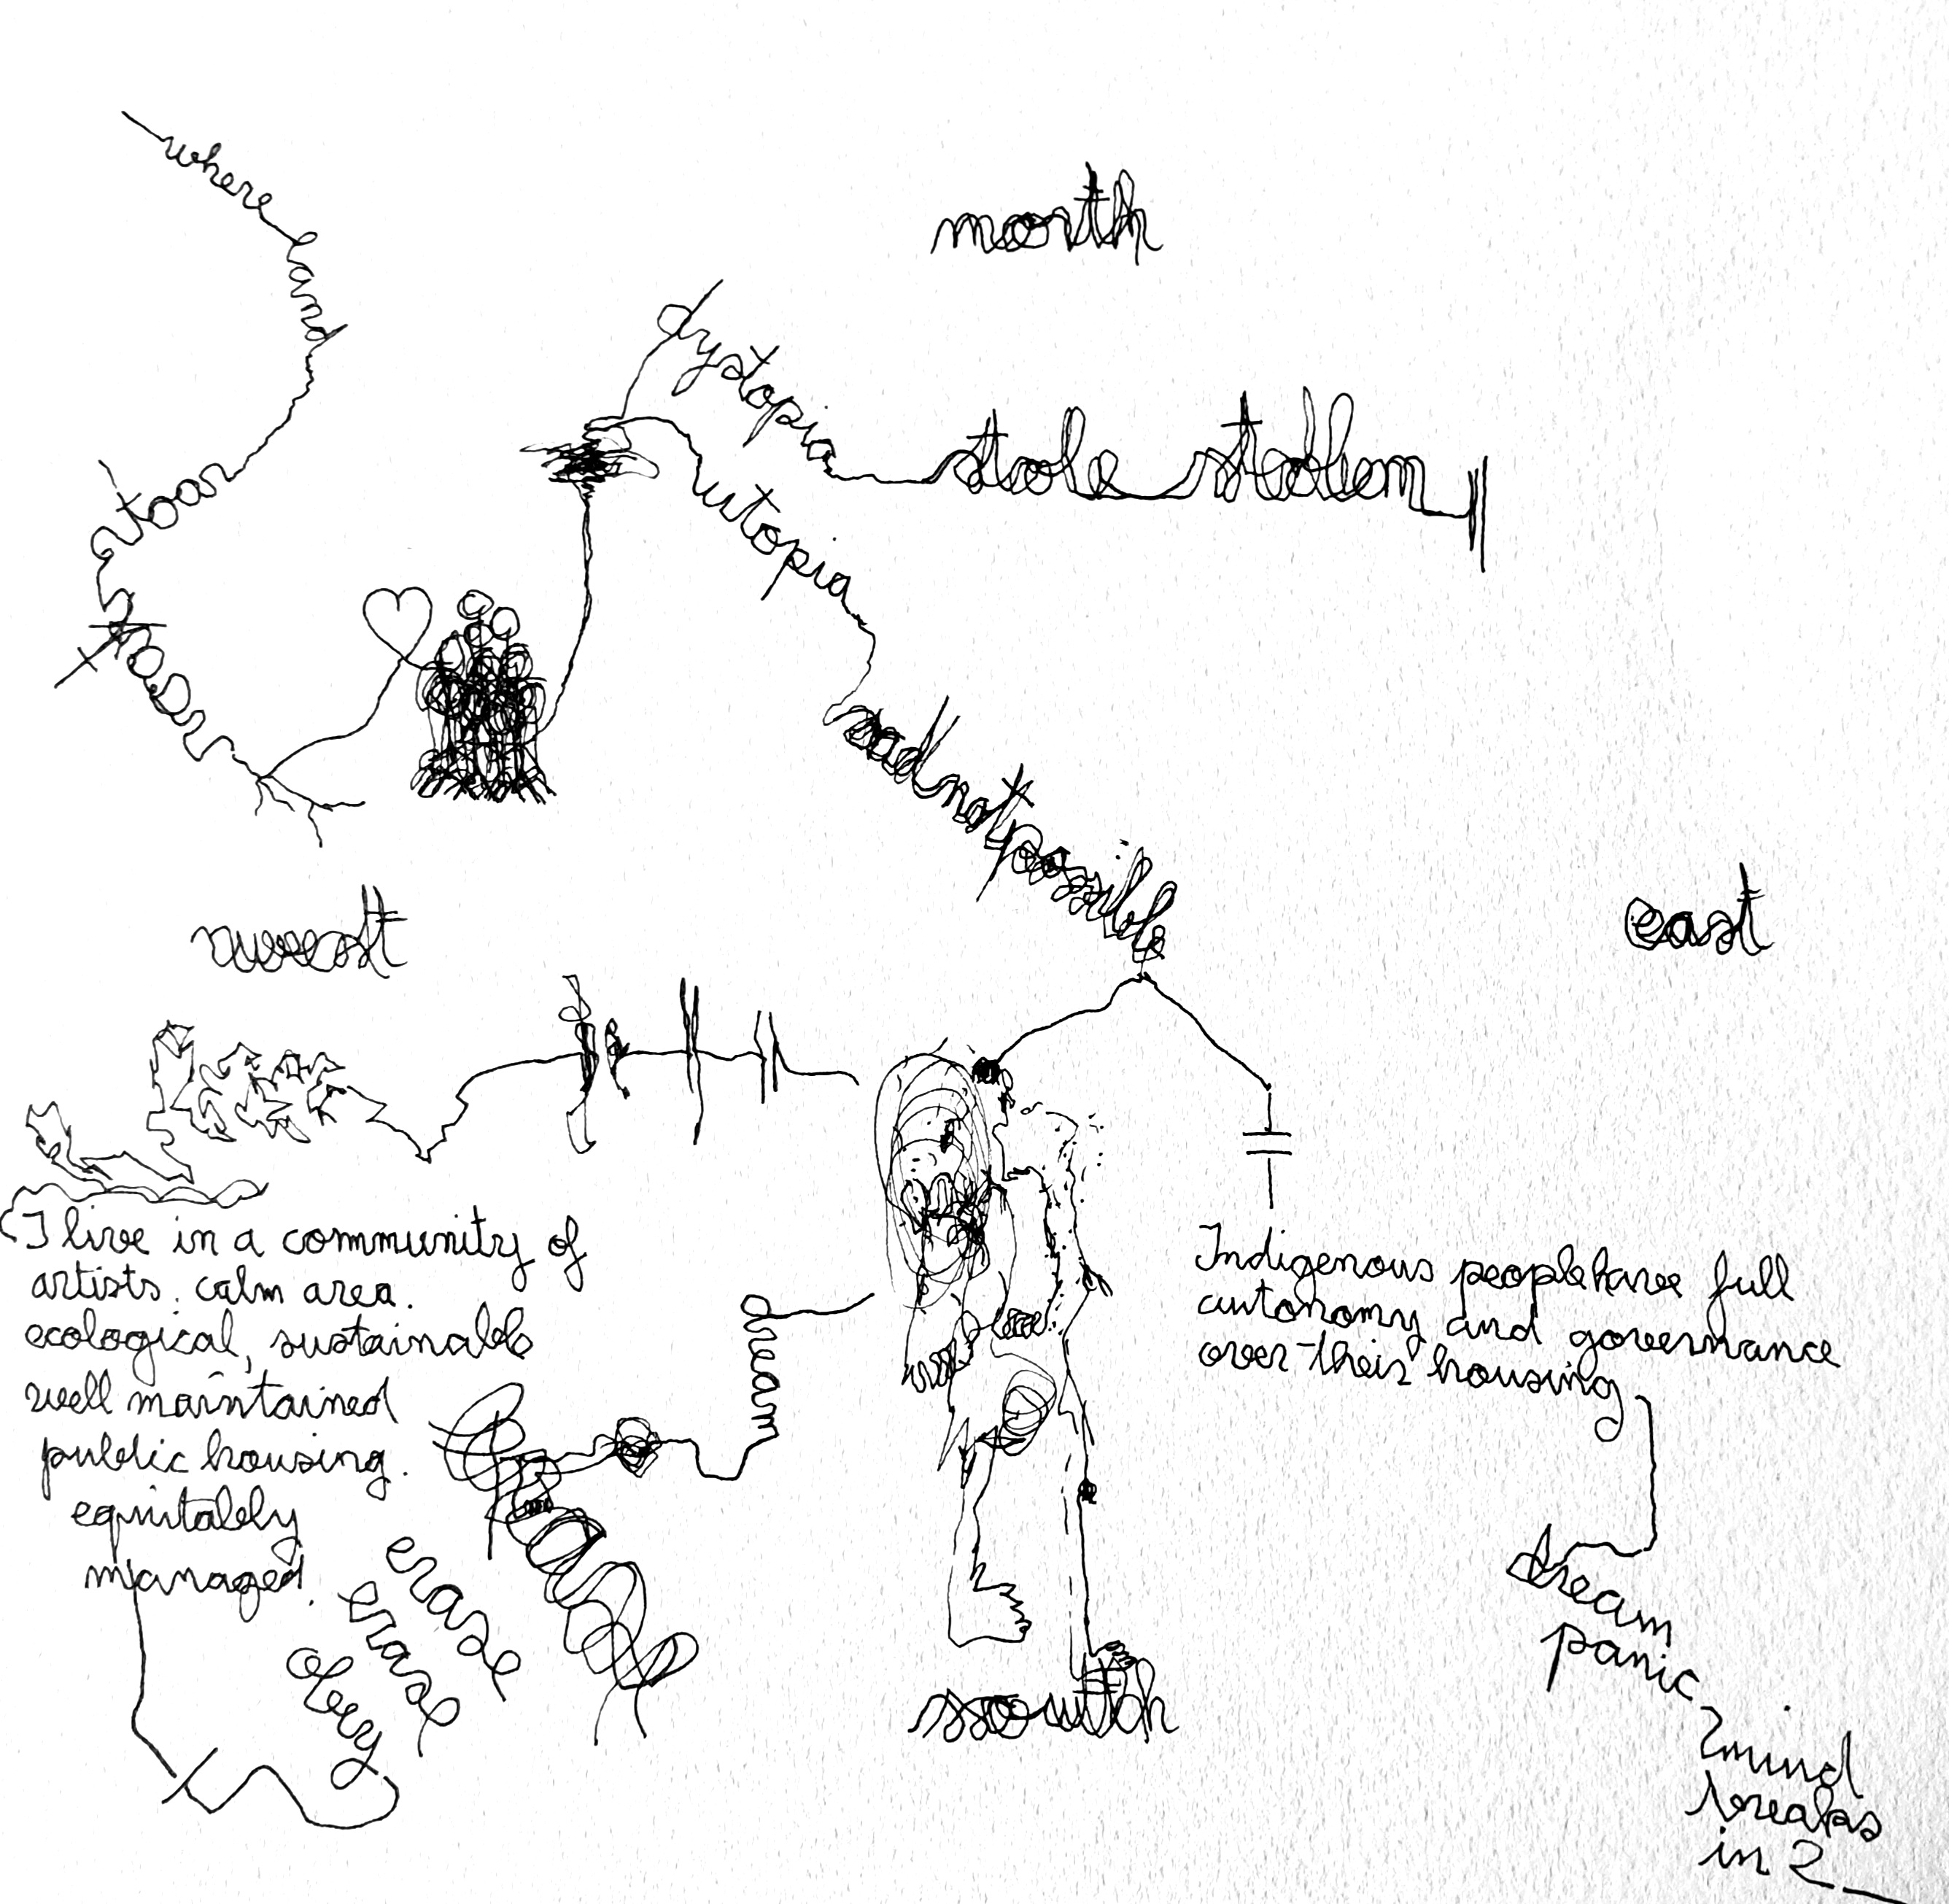 where
land
north
dystopia
stole stollen
utopia
toar
toar
sad not possible
west
east
I live in a community of
artists. calm area.
ecological, sustainable
well maintained
public housing.
equitably
managed.
dream
erase
erase
erase
obey
Indigenous people have full
autonomy and governance
over their housing
dream
panic
2 mind
breaks
in 2
south